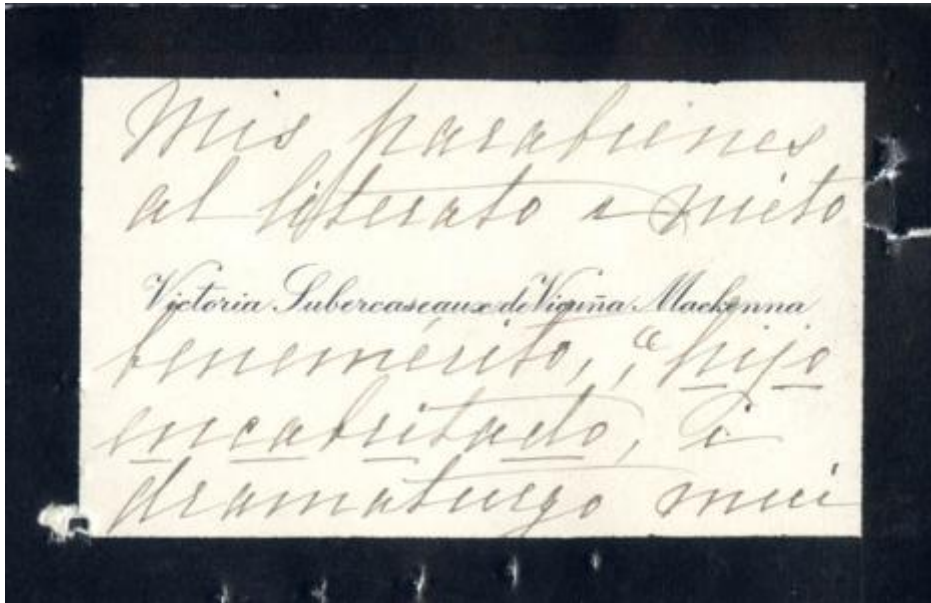 Mis parabienes
al literato i nieto
Victoria Subercaseaux de Vicuña Mackenna
benemérito, "hijo
encabritado, i
dramaturgo mui